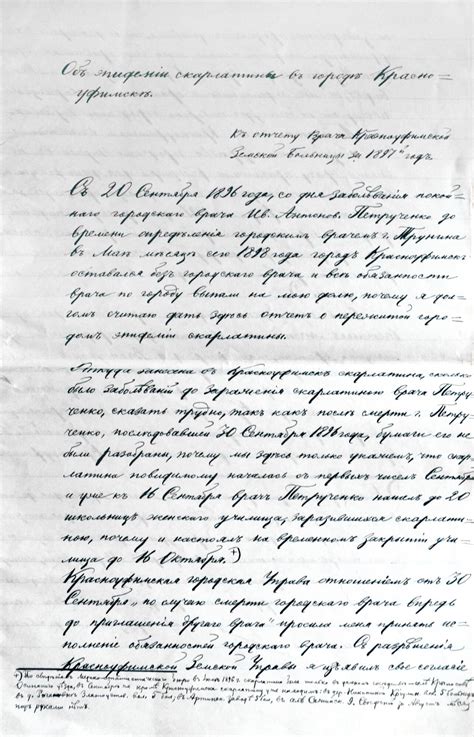 Объ эпидеміи скарлатины въ городѣ Красно-
уфимскѣ.
Къ отчету Врача Красноуфимской
Земской Больницы за 1897й годъ.
Съ 20 Сентября 1896 года, со дня заболѣванія покой-
наго городского врача Ив. Антонов. Петрученко до
времени опредѣленія городскимъ врачемъ г. Трунина
въ Маѣ мѣсяцѣ сего 1898 года городъ Красноуфимскъ
оставался безъ городского врача и всѣ обязанности
врача по городу выпали на мою долю, почему я дол-
гомъ считаю дать здѣсь отчетъ о пережитой горо-
домъ эпидеміи скарлатины.
Откуда занесена въ Красноуфимскъ скарлатина, сколько
было заболѣваній до зараженія скарлатиною врача Петру-
ченко, сказать трудно, такъ какъ послѣ смерти г. Петру-
ченко, послѣдовавшей 30 Сентября 1896 года, бумаги его не
были разобраны, почему мы здѣсь только укажемъ, что скар-
латина повидимому началась съ первыхъ чиселъ Сентября
и уже къ 16 Сентября врачъ Петрученко нашелъ до 20
школьницъ женскаго училища, заразившихся скарлати-
ною, почему и настоялъ на временномъ закрытіи учи-
лища до 16 Октября. +)
Красноуфимская городская Управа отношеніемъ отъ 30
Сентября „по случаю смерти городского врача впредь
до приглашенія другого врача" просила меня принять ис-
полненіе обязанностей городского врача. Съ разрѣшенія
Красноуфимской Земской Управы я изъявилъ свое согласіе
+) По свѣдѣніямъ